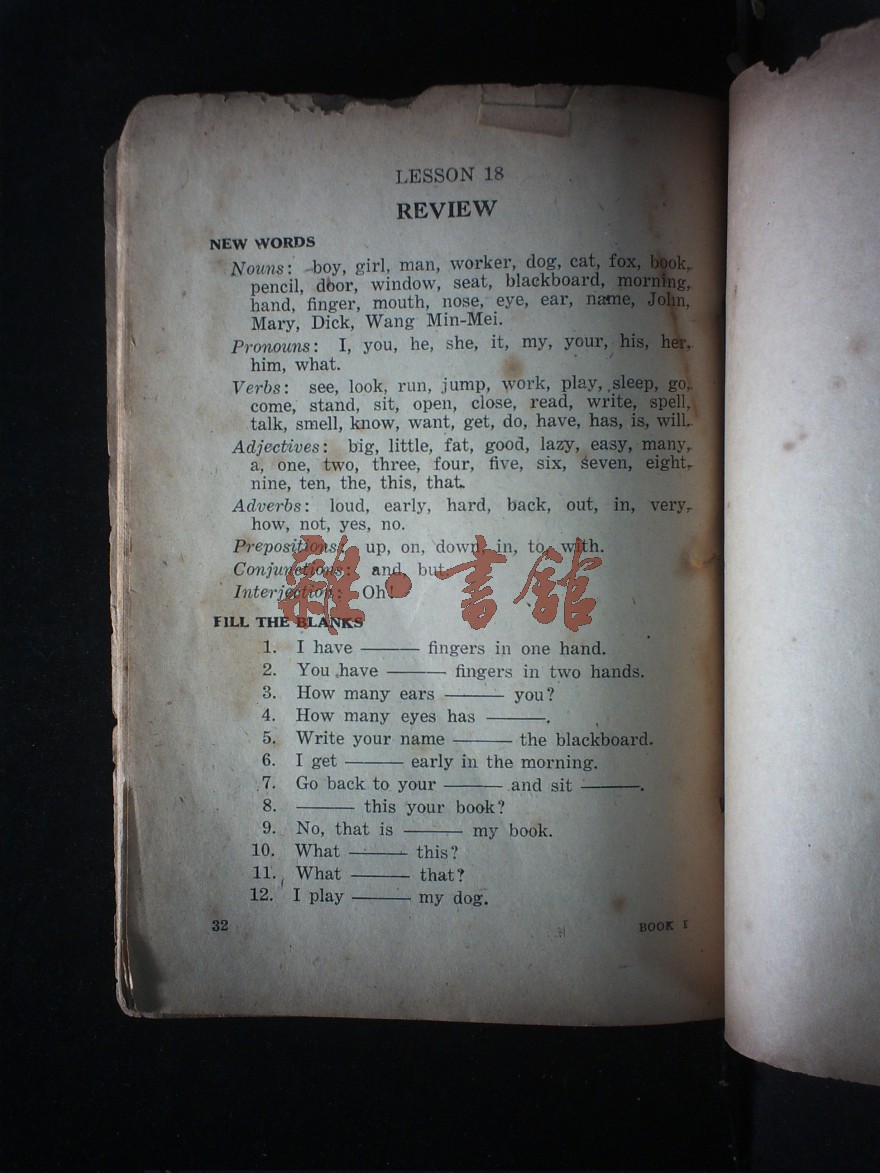 LESSON 18
REVIEW
NEW WORDS
Nouns: boy, girl, man, worker, dog, cat, fox, book,
pencil, door, window, seat, blackboard, morning,
hand, finger, mouth, nose, eye, ear, name, John,
Mary, Dick, Wang Min-Mei.
Pronouns: I, you, he, she, it, my, your, his, her,
him, what.
Verbs: see, look, run, jump, work, play, sleep, go,
come, stand, sit, open, close, read, write, spell,
talk, smell, know, want, get, do, have, has, is, will.
Adjectives: big, little, fat, good, lazy, easy, many,
a, one, two, three, four, five, six, seven, eight,
nine, ten, the, this, that.
Adverbs: loud, early, hard, back, out, in, very,
how, not, yes, no.
Prepositions: up, on, down, in, to, with.
Conjunctions: and, but
Interjection: Oh!
雜·書館
FILL THE BLANKS
1. I have ——— fingers in one hand.
2. You have ——— fingers in two hands.
3. How many ears ——— you?
4. How many eyes has ———.
5. Write your name ——— the blackboard.
6. I get ——— early in the morning.
7. Go back to your ——— and sit ———.
8. ——— this your book?
9. No, that is ——— my book.
10. What ——— this?
11. What ——— that?
12. I play ——— my dog.
32 BOOK I